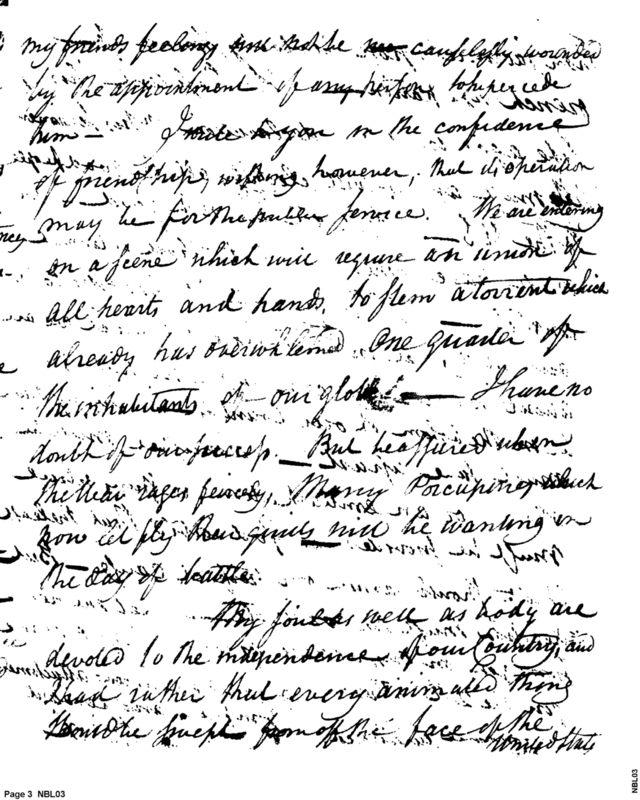 my friends feelings will not be causelessly wounded
by the appointment of any person to supercede
him — I write to you in the confidence
of friendship, wishing however, that its operation
may be for the publick service. We are entering
on a scene which will require an union of
all hearts and hands, to stem a torrent which
already has overwhelmed one quarter of
the inhabitants of our globe — I have no
doubt of our success. — But be assured when
the War rages fiercely, Many Porcupines which
now let fly their quills will be wanting in
the day of battle
My soul as well as body are
devoted to the independence of our Country, and
I had rather that every animated thing
should be swept from off the face of the
United States
Page 3 NBL03
NBL03